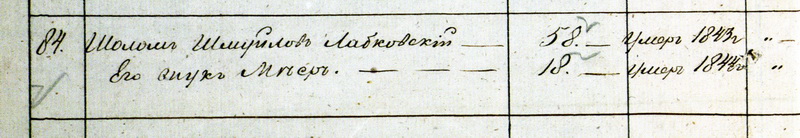 84. Шоломъ Шмуйловъ Лабковскій — 58. — умеръ 1843г "
Его внукъ Мееръ. — — — 18. — умеръ 1844г "